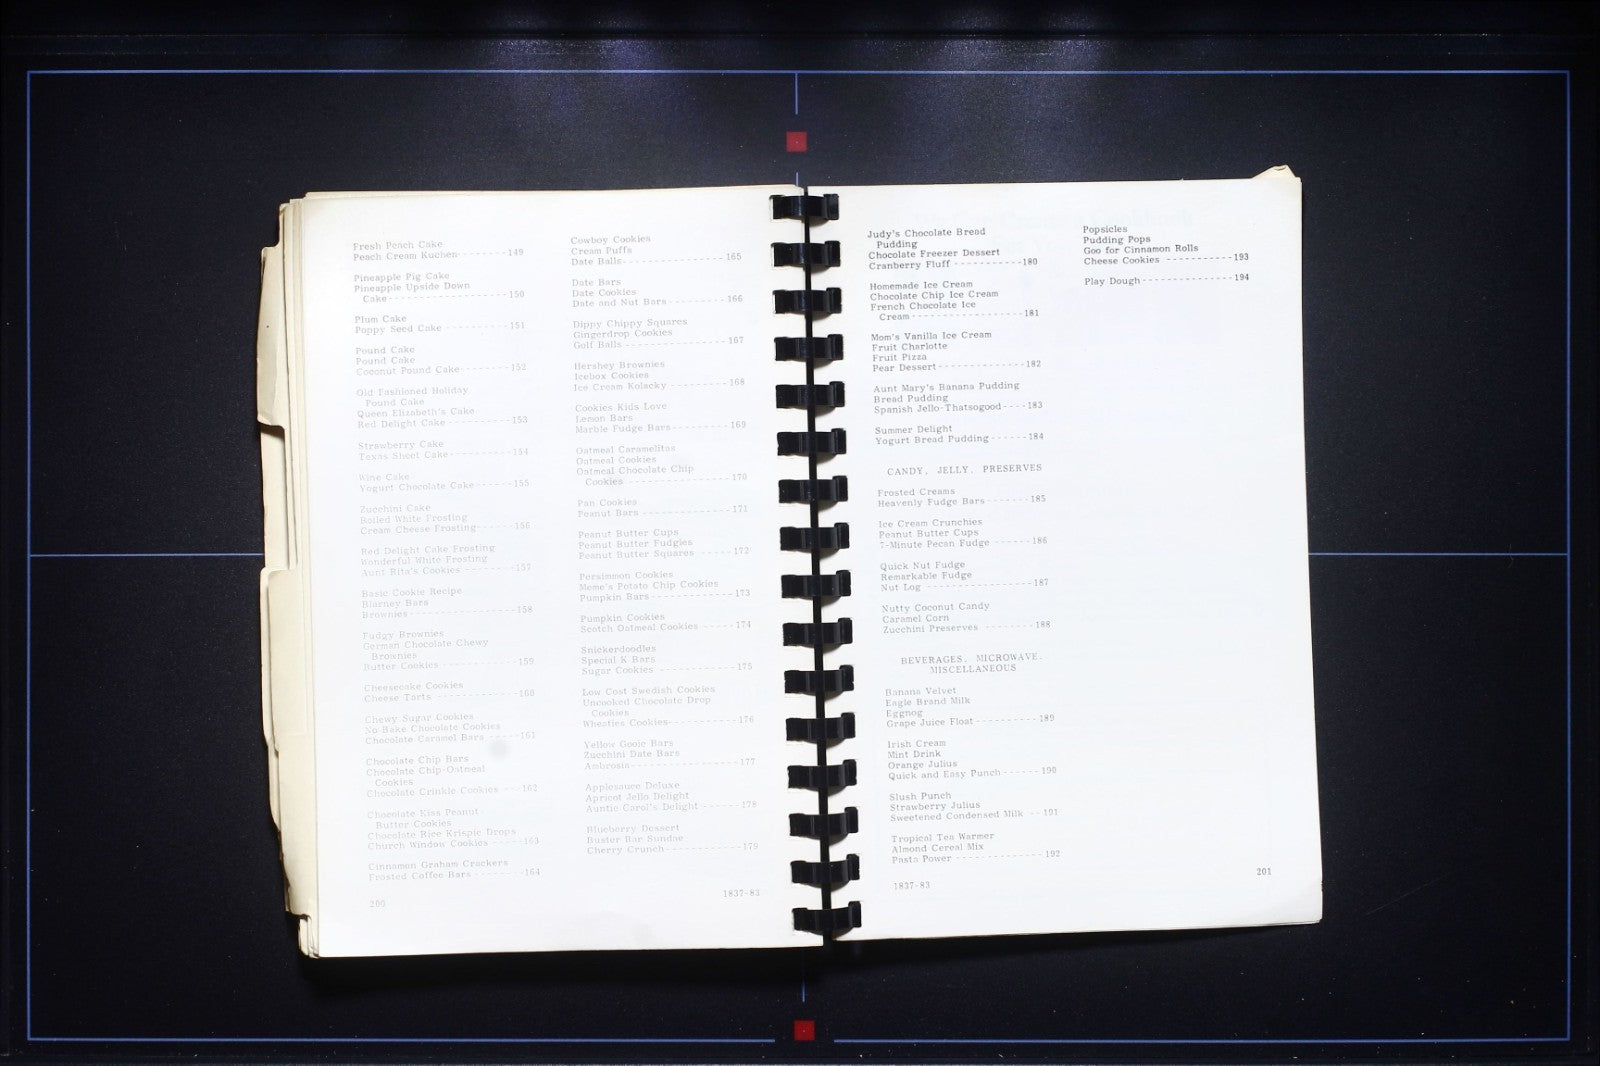 Fresh Peach Cake
Peach Cream Kuchen--------149
Pineapple Pig Cake
Pineapple Upside Down
Cake--------------------150
Plum Cake
Poppy Seed Cake -----------151
Pound Cake
Pound Cake
Coconut Pound Cake--------152
Old Fashioned Holiday
Pound Cake
Queen Elizabeth's Cake
Red Delight Cake -----------153
Strawberry Cake
Texas Sheet Cake-----------154
Wine Cake
Yogurt Chocolate Cake------155
Zucchini Cake
Boiled White Frosting
Cream Cheese Frosting------156
Red Delight Cake Frosting
Wonderful White Frosting
Aunt Rita's Cookies --------157
Basic Cookie Recipe
Blarney Bars
Brownies------------------158
Fudgy Brownies
German Chocolate Chewy
Brownies
Butter Cookies -------------159
Cheesecake Cookies
Cheese Tarts --------------160
Chewy Sugar Cookies
No Bake Chocolate Cookies
Chocolate Caramel Bars -----161
Chocolate Chip Bars
Chocolate Chip-Oatmeal
Cookies
Chocolate Crinkle Cookies ---162
Chocolate Kiss Peanut
Butter Cookies
Chocolate Rice Krispie Drops
Church Window Cookies -----163
Cinnamon Graham Crackers
Frosted Coffee Bars --------164
200
Cowboy Cookies
Cream Puffs
Date Balls-----------------165
Date Bars
Date Cookies
Date and Nut Bars ---------166
Dippy Chippy Squares
Gingerdrop Cookies
Golf Balls -----------------167
Hershey Brownies
Icebox Cookies
Ice Cream Kolacky ---------168
Cookies Kids Love
Lemon Bars
Marble Fudge Bars---------169
Oatmeal Caramelitas
Oatmeal Cookies
Oatmeal Chocolate Chip
Cookies -----------------170
Pan Cookies
Peanut Bars --------------171
Peanut Butter Cups
Peanut Butter Fudgies
Peanut Butter Squares -----172
Persimmon Cookies
Meme's Potato Chip Cookies
Pumpkin Bars-------------173
Pumpkin Cookies
Scotch Oatmeal Cookies -----174
Snickerdoodles
Special K Bars
Sugar Cookies ------------175
Low Cost Swedish Cookies
Uncooked Chocolate Drop
Cookies
Wheaties Cookies-----------176
Yellow Gooie Bars
Zucchini Date Bars
Ambrosia-----------------177
Applesauce Deluxe
Apricot Jello Delight
Auntie Carol's Delight ------178
Blueberry Dessert
Buster Bar Sundae
Cherry Crunch------------179
1837-83
Judy's Chocolate Bread
Pudding
Chocolate Freezer Dessert
Cranberry Fluff -----------180
Homemade Ice Cream
Chocolate Chip Ice Cream
French Chocolate Ice
Cream------------------181
Mom's Vanilla Ice Cream
Fruit Charlotte
Fruit Pizza
Pear Dessert--------------182
Aunt Mary's Banana Pudding
Bread Pudding
Spanish Jello-Thatsogood----183
Summer Delight
Yogurt Bread Pudding------184
CANDY, JELLY, PRESERVES
Frosted Creams
Heavenly Fudge Bars-------185
Ice Cream Crunchies
Peanut Butter Cups
7-Minute Pecan Fudge ------186
Quick Nut Fudge
Remarkable Fudge
Nut Log -----------------187
Nutty Coconut Candy
Caramel Corn
Zucchini Preserves --------188
BEVERAGES, MICROWAVE,
MISCELLANEOUS
Banana Velvet
Eagle Brand Milk
Eggnog
Grape Juice Float----------189
Irish Cream
Mint Drink
Orange Julius
Quick and Easy Punch------190
Slush Punch
Strawberry Julius
Sweetened Condensed Milk --191
Tropical Tea Warmer
Almond Cereal Mix
Pasta Power --------------192
1837-83
Popsicles
Pudding Pops
Goo for Cinnamon Rolls
Cheese Cookies -----------193
Play Dough---------------194
201